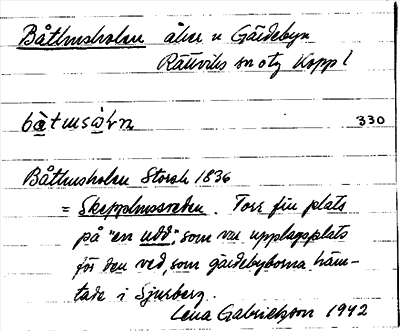 Båtlmsholen åker n Gärdebyn
Rättviks sn otg Koppl
båtmsɔ̀ɫn
330
Båtlmsholen Storsk 1836
= Skepplmssveden. Torr fin plats
på "en udd", som var upplagsplats
för den ved, som gärdebyborna häm-
tade i Sjurberg.
Lena Gabrielsson 1942